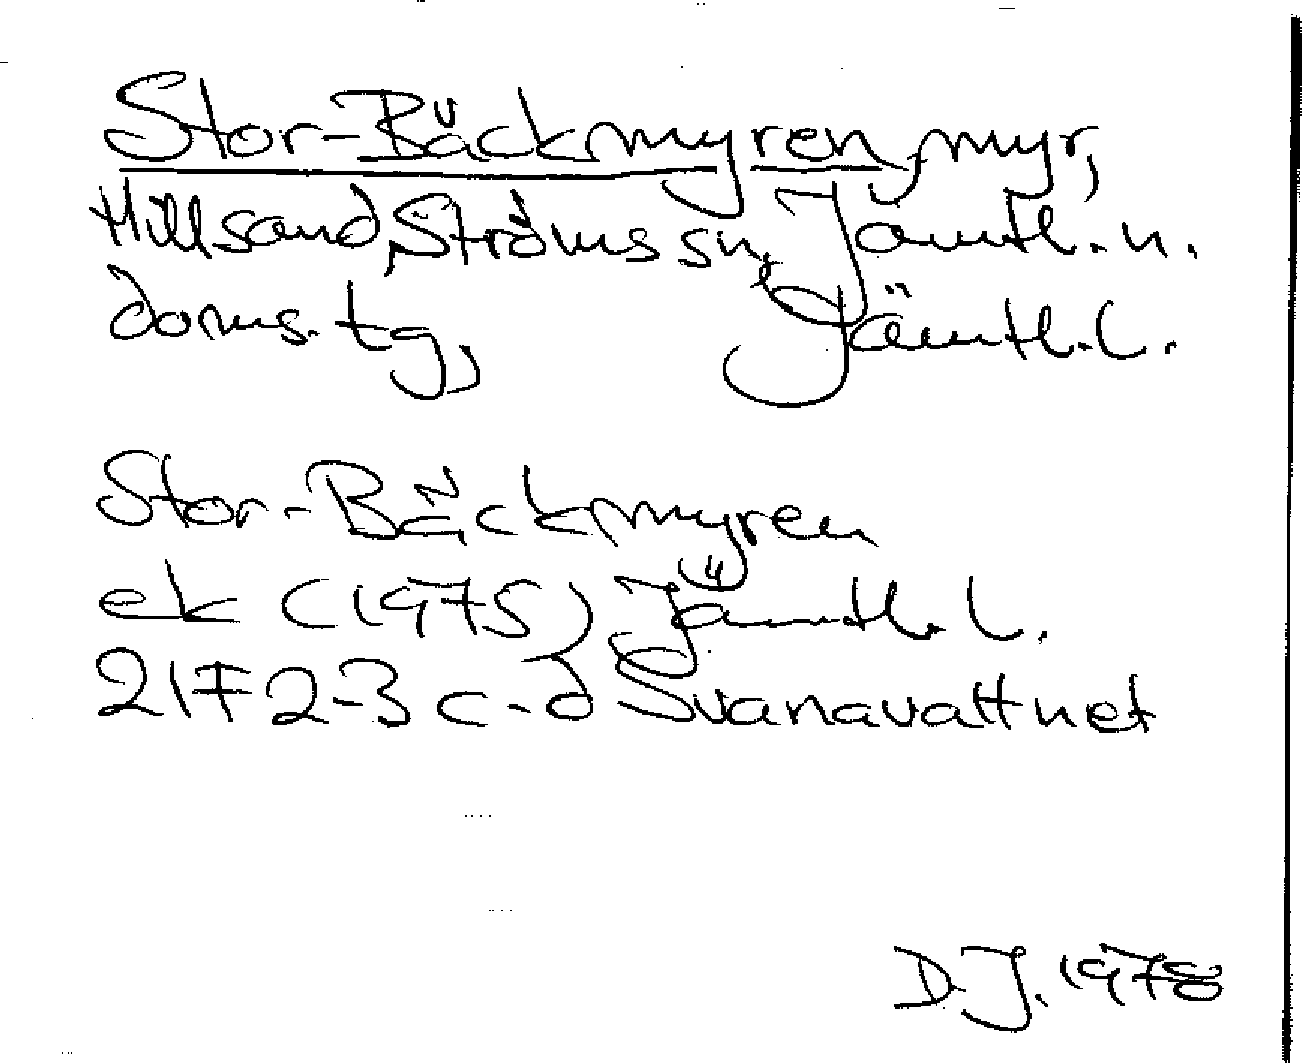 Stor-Bäckmyren, myr,
Hillsand, Ströms sn, Jämtl. n.
doms. tg, Jämtl. l.
Stor-Bäckmyren
ek (1975) Jämtl. l.
2172-3 c-d Svanavattnet
D.J. 1978